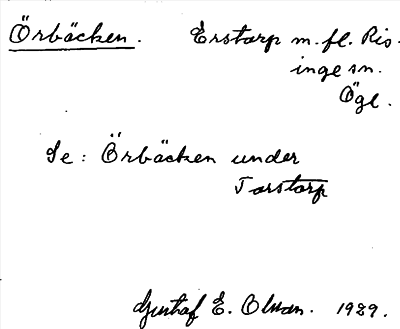 Örbäcken. Erstorp m.fl. Ris-
inge sn.
Ögl.
Se: Örbäcken under
Torstorp
Gustaf E. Olsson. 1929.